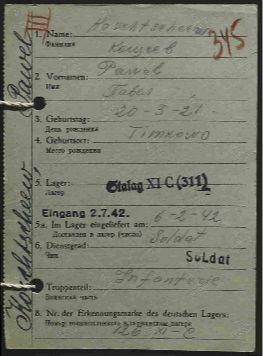 III
345
1. Name:
Фамилия
Кощеев
2. Vornamen: Pawel
Имя
Павел
3. Geburtstag: 20-3-21
День рождения
4. Geburtsort: Timkowo
Место рождения
5. Lager: Stalag XI C (311)
Лагерь
Eingang 2.7.42.
5a. Im Lager eingeliefert am: 6-2-42
Доставлен в лагерь (число)
6. Dienstgrad: Soldat
Чин
Soldat
Truppenteil: Infanterie
Воинская часть
8. Nr. der Erkennungsmarke des deutschen Lagers:
126 XI-C
Pawel